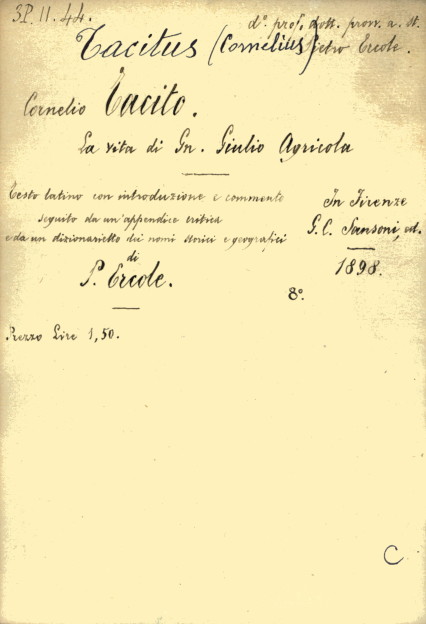 3P. 11. 44.
d.º prof. dott. prov. a. st.
Tacitus (Cornelius) Pietro Ercole.
Cornelio Tacito.
La vita di Gn. Giulio Agricola
Testo latino con introduzione e commento
seguito da un'appendice critica
e da un dizionarietto dei nomi storici e geografici
di
P. Ercole.
In Firenze
G. C. Sansoni, ed.
1898.
8º.
Prezzo Lire 1,50.
C